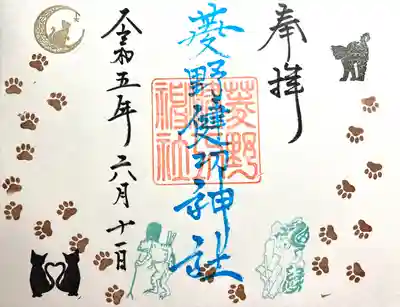 奉拝
菱野健功神社
令和五年六月十一日
菱野
神社